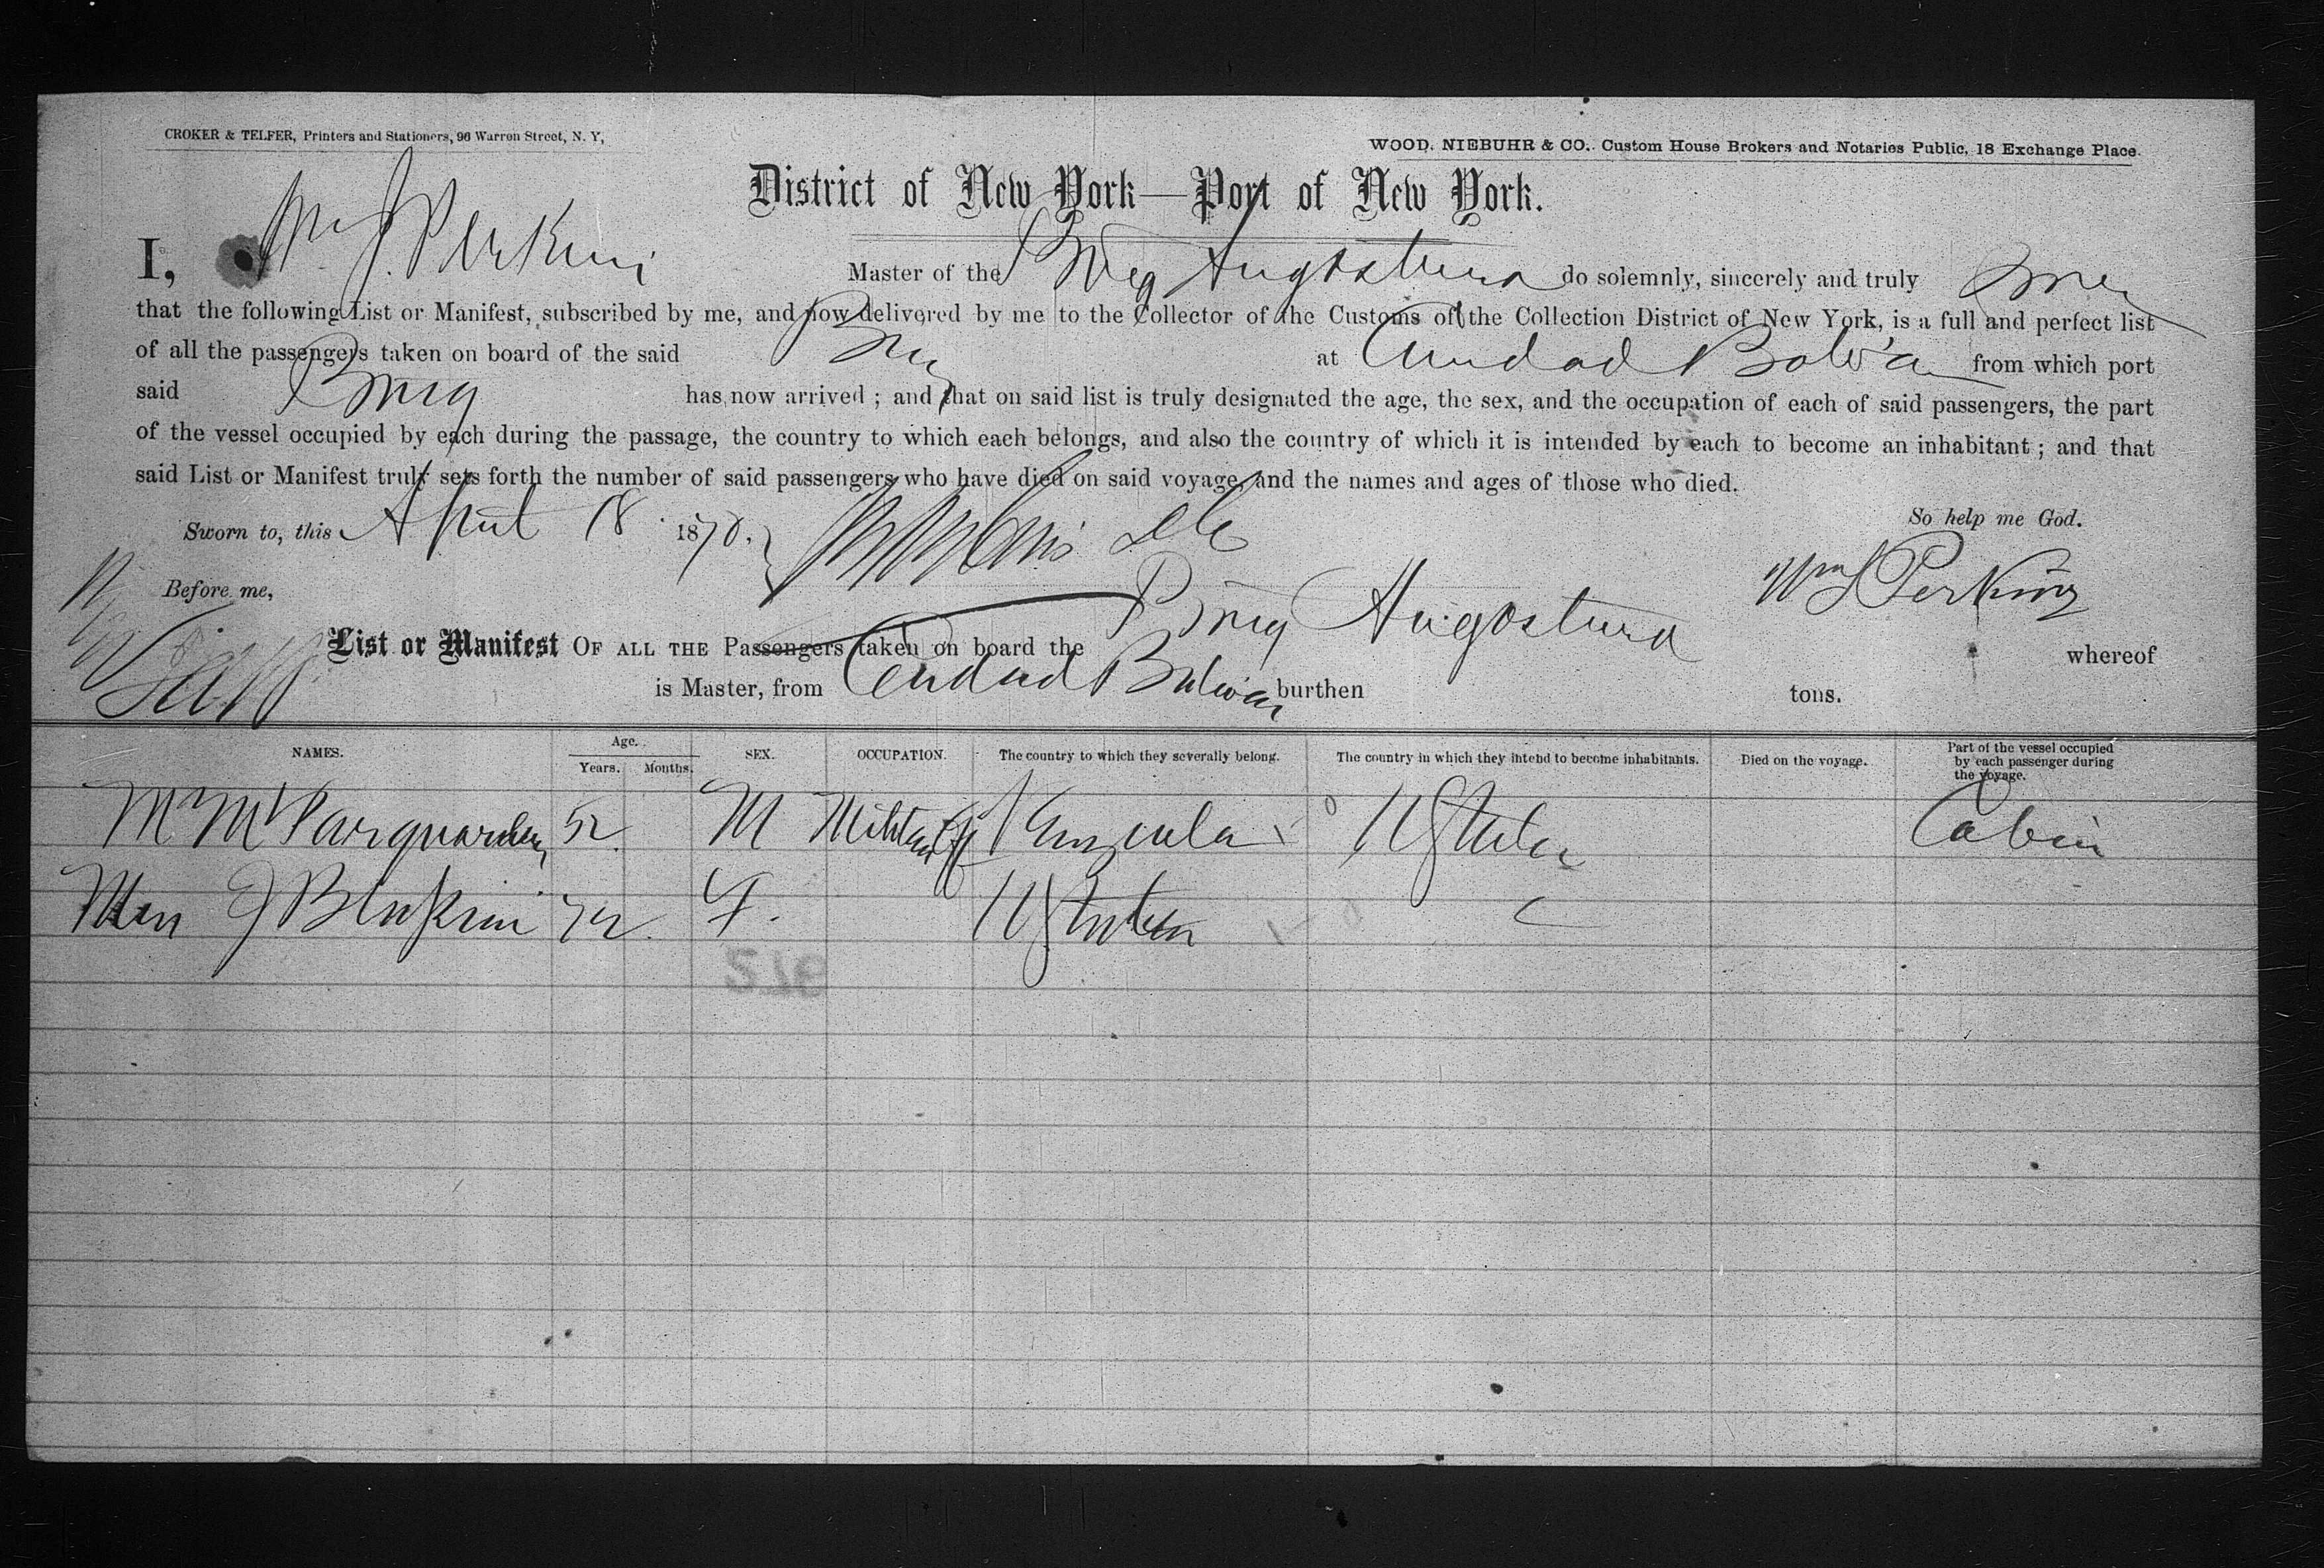 CROKER & TELFER, Printers and Stationers, 96 Warren Street, N. Y,
WOOD, NIEBUHR & CO., Custom House Brokers and Notaries Public, 18 Exchange Place.
District of New York—Port of New York.
I, Wm J. Perkins Master of the Brig Angostura do solemnly, sincerely and truly swear
that the following List or Manifest, subscribed by me, and now delivered by me to the Collector of the Customs of the Collection District of New York, is a full and perfect list
of all the passengers taken on board of the said Brig at Ciudad Bolivar from which port
said Brig has now arrived ; and that on said list is truly designated the age, the sex, and the occupation of each of said passengers, the part
of the vessel occupied by each during the passage, the country to which each belongs, and also the country of which it is intended by each to become an inhabitant ; and that
said List or Manifest truly sets forth the number of said passengers who have died on said voyage, and the names and ages of those who died.
So help me God.
Sworn to, this April 18 1870.
Wm J Perkins
Before me,
List or Manifest OF ALL THE Passengers taken on board the Brig Angostura whereof
is Master, from Ciudad Bolivar burthen tons.
NAMES. Age. Years. Months. SEX. OCCUPATION. The country to which they severally belong. The country in which they intend to become inhabitants. Died on the voyage. Part of the vessel occupied by each passenger during the voyage.
M M 52 M Military Venezuela U States Cabin
E J 72 F. U States